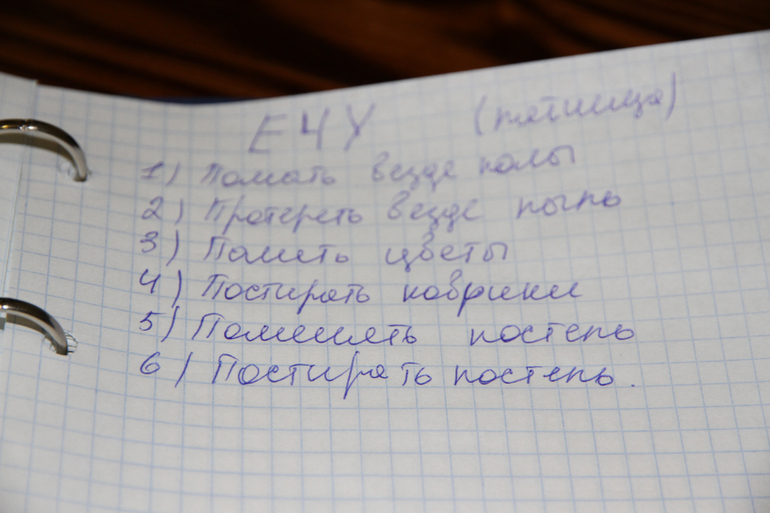 ЕЧУ (пятница)
1) Помыть везде полы
2) Протереть везде пыль
3) Полить цветы
4) Постирать коврики
5) Поменять постель
6) Постирать постель.